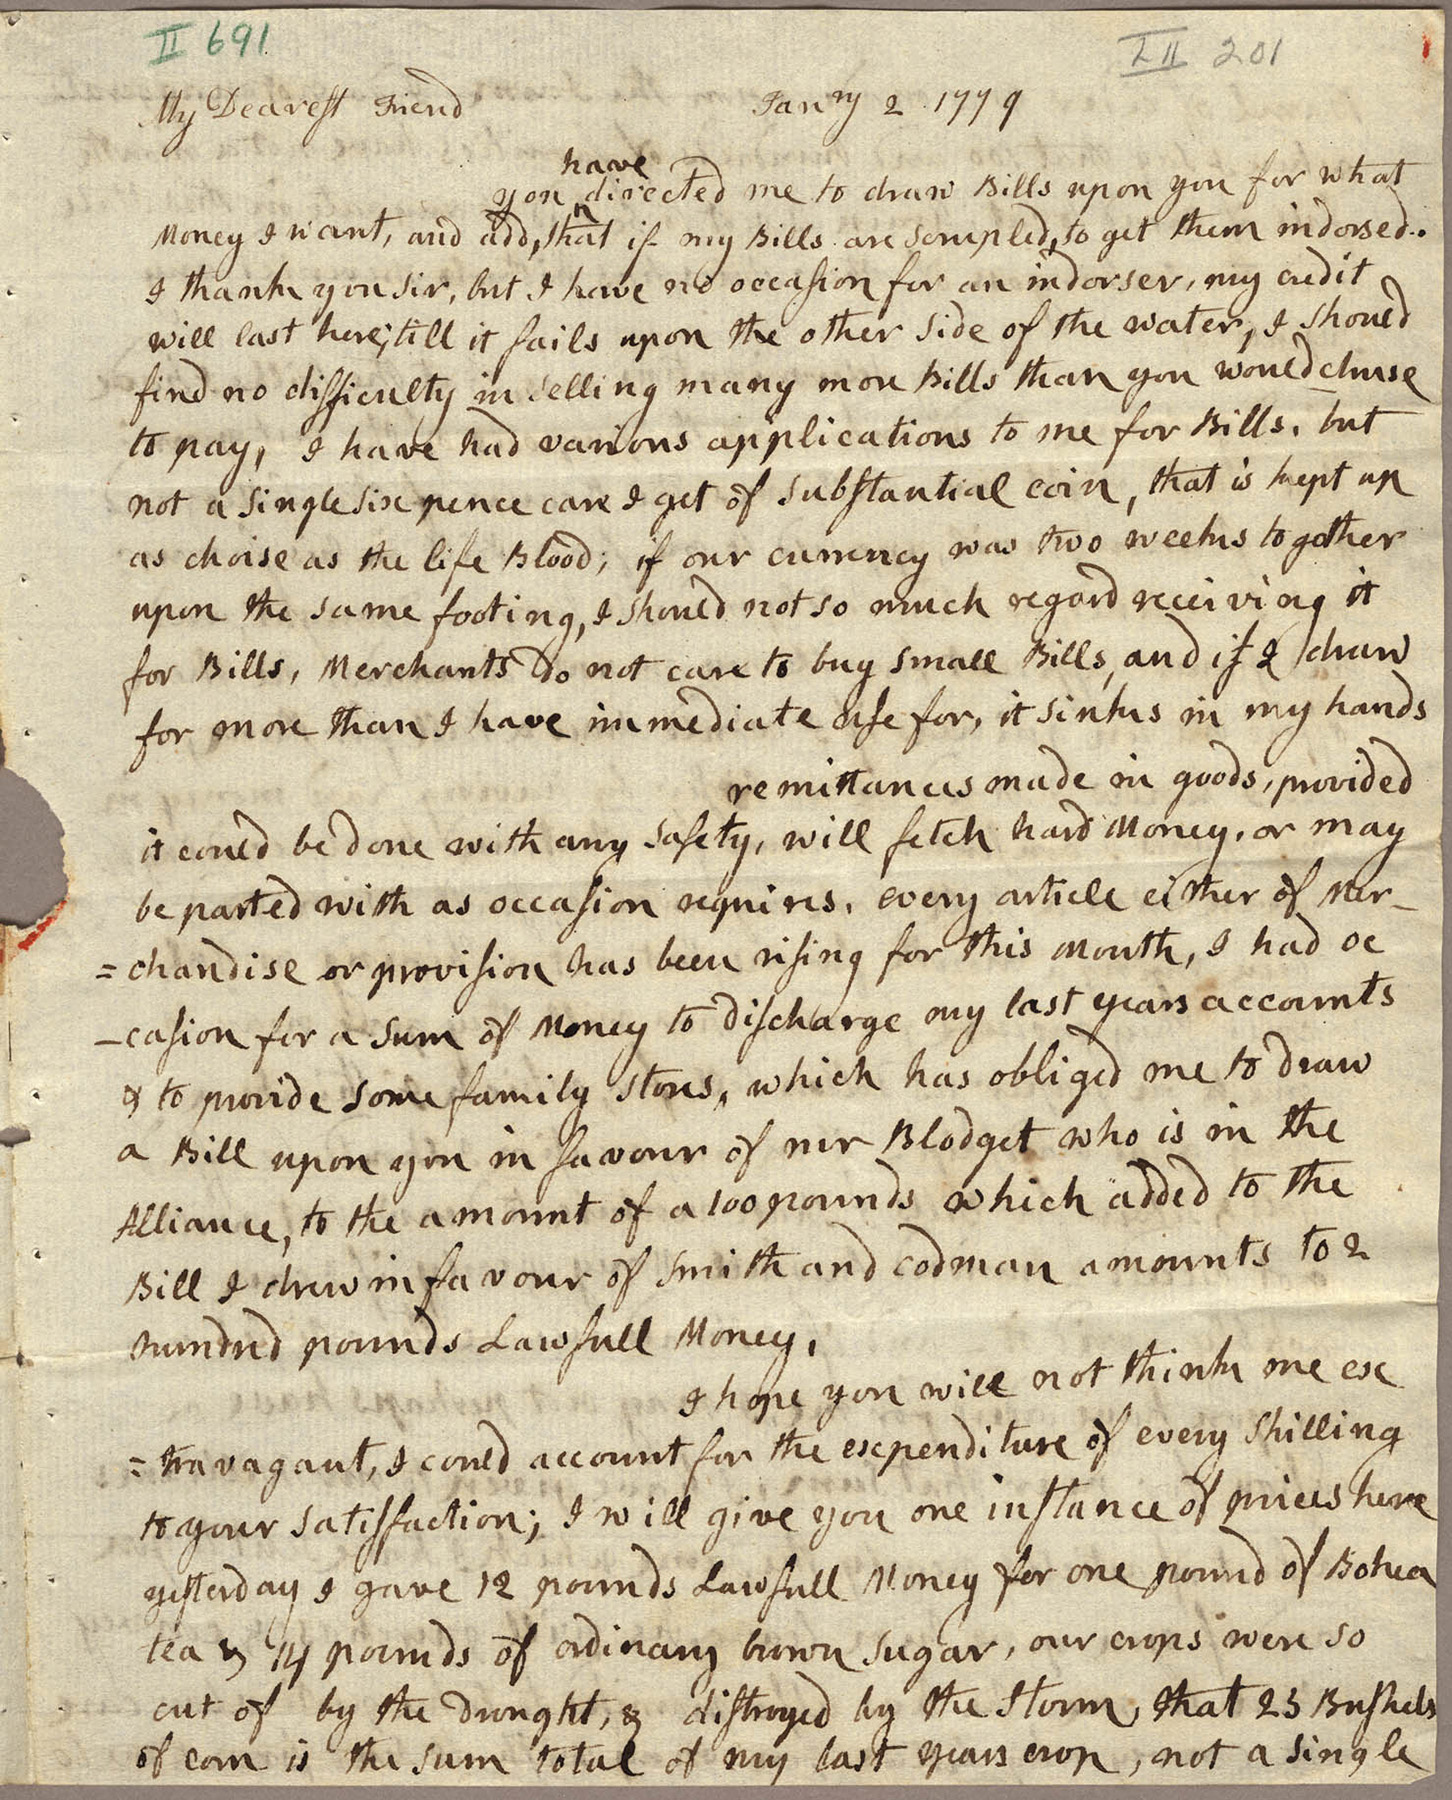 II 691
LII 201
My Dearest Friend
Janry 2 1779
have
you ^ directed me to draw Bills upon you for what
Money I want, and add, that if my Bills are scrupled, to get them indorsed..
I thank you Sir, but I have no occasion for an indorser, my credit
will last here, till it fails upon the other side of the water, I should
find no difficulty in selling many more Bills than you would chuse
to pay, I have had various applications to me for Bills. but
not a single six pence can I get of substantial coin, that is kept up
as choise as the life Blood; if our currency was two weeks together
upon the same footing, I should not so much regard receiving it
for Bills, Merchants do not care to buy small Bills, and if I draw
for more than I have immediate use for, it sinks in my hands
remittances made in goods, provided
it could be done with any safety, will fetch hard Money, or may
be parted with as occasion requires. every article either of Mer_
=chandise or provision has been rising for this Month, I had oc
_casion for a Sum of Money to discharge my last years accounts
& to provide some family stores, which has obliged me to draw
a Bill upon you in favour of mr Blodget who is in the
Alliance, to the amount of a 100 pounds which added to the
Bill I drew in favour of Smith and Codman amounts to 2
hundred pounds Lawfull Money,
I hope you will not think me ex
=travagant, I could account for the expenditure of every Shilling
to your satisfaction; I will give you one instance of prices here
yesterday I gave 12 pounds Lawfull Money for one pound of Bohea
tea & 14 pounds of ordinary brown sugar, our crops were so
cut of by the Drought, & distroyed by the Storm, that 25 Bushels
of corn is the sum total of my last years crop, not a single